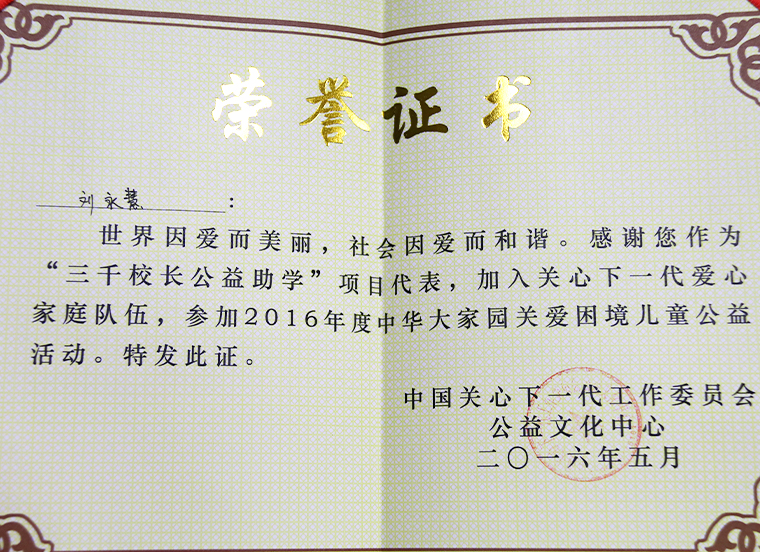 荣誉证书
刘永慧：
世界因爱而美丽，社会因爱而和谐。感谢您作为
“三千校长公益助学”项目代表，加入关心下一代爱心
家庭队伍，参加2016年度中华大家园关爱困境儿童公益
活动。特发此证。
中国关心下一代工作委员会
公益文化中心
二〇一六年五月